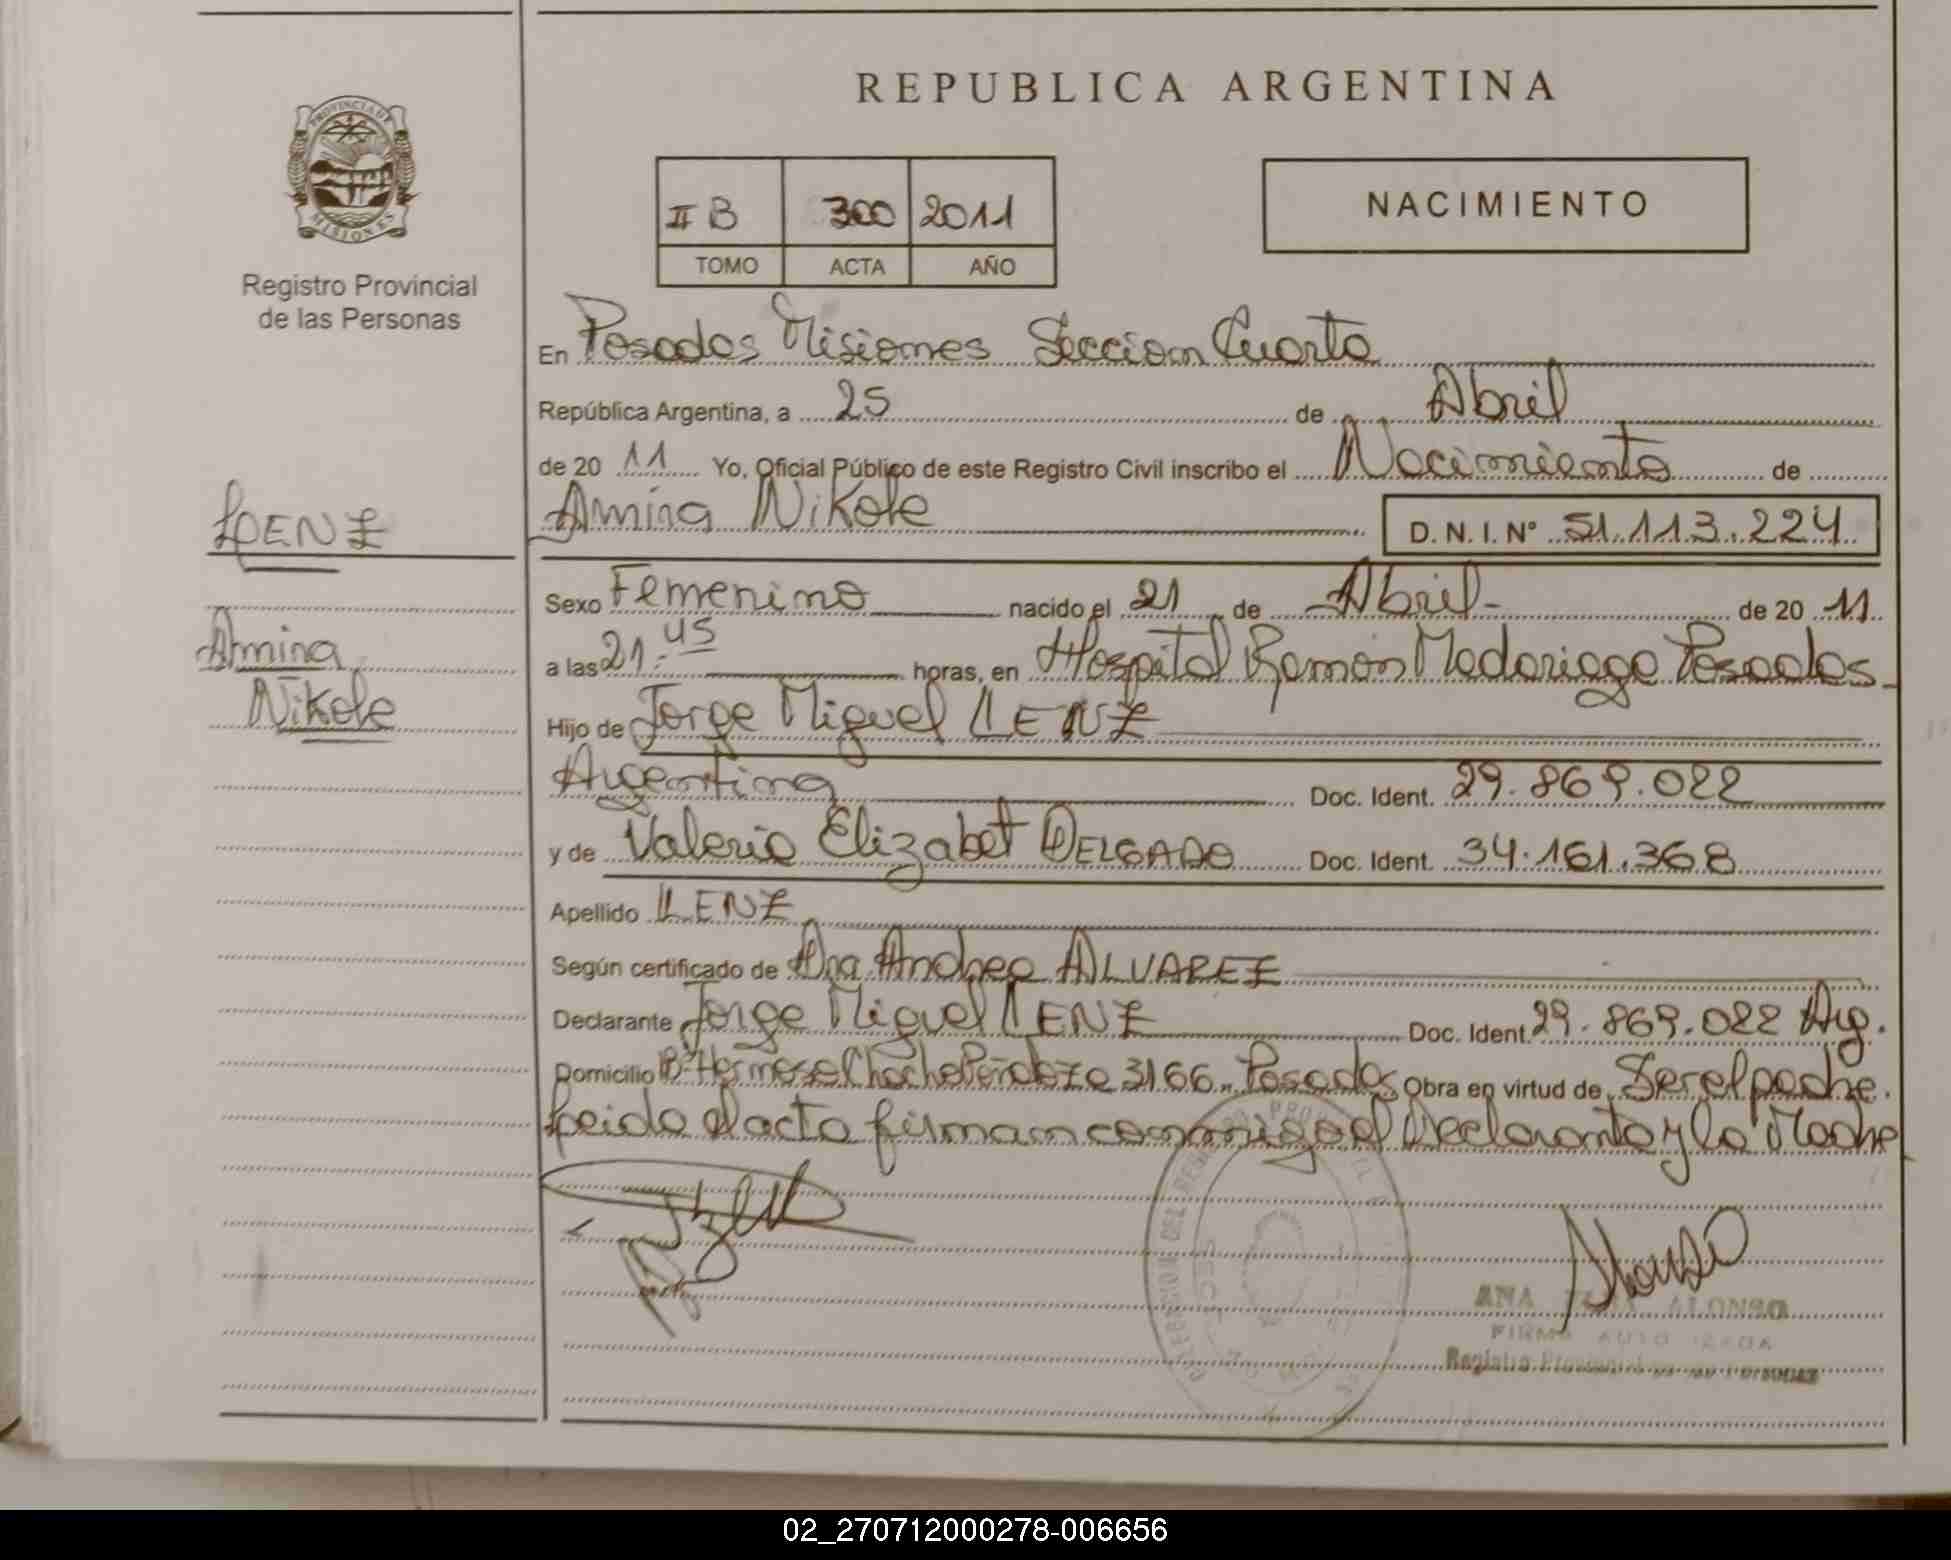 REPUBLICA ARGENTINA
PROVINCIA DE
MISIONES
Registro Provincial
de las Personas
II B 300 2011
TOMO ACTA AÑO
NACIMIENTO
En Posadas Misiones Seccion Cuarta
República Argentina, a 25 de Abril
de 20 11 Yo, Oficial Público de este Registro Civil inscribo el Nacimiento de
Amira Nikole D. N. I. Nº 51.113.224
LENZ
Amira
Nikole
Sexo Femenino nacido el 21 de Abril de 20 11
a las 21:45 horas, en Hospital Ramón Madariaga Posadas
Hijo de Jorge Miguel LENZ
Argentina Doc. Ident. 29.869.022
y de Valeria Elizabet DELGADO Doc. Ident. 34.161.368
Apellido LENZ
Según certificado de Dra Andrea ALVAREZ
Declarante Jorge Miguel LENZ Doc. Ident. 29.869.022 Arg.
Domicilio 3166 Posadas Obra en virtud de Ser el padre.
Leida el acta firman conmigo el Declarante y la Madre
ANA ALONSO
FIRMA AUTORIZADA
Registro Provincial de las Personas
02_270712000278-006656